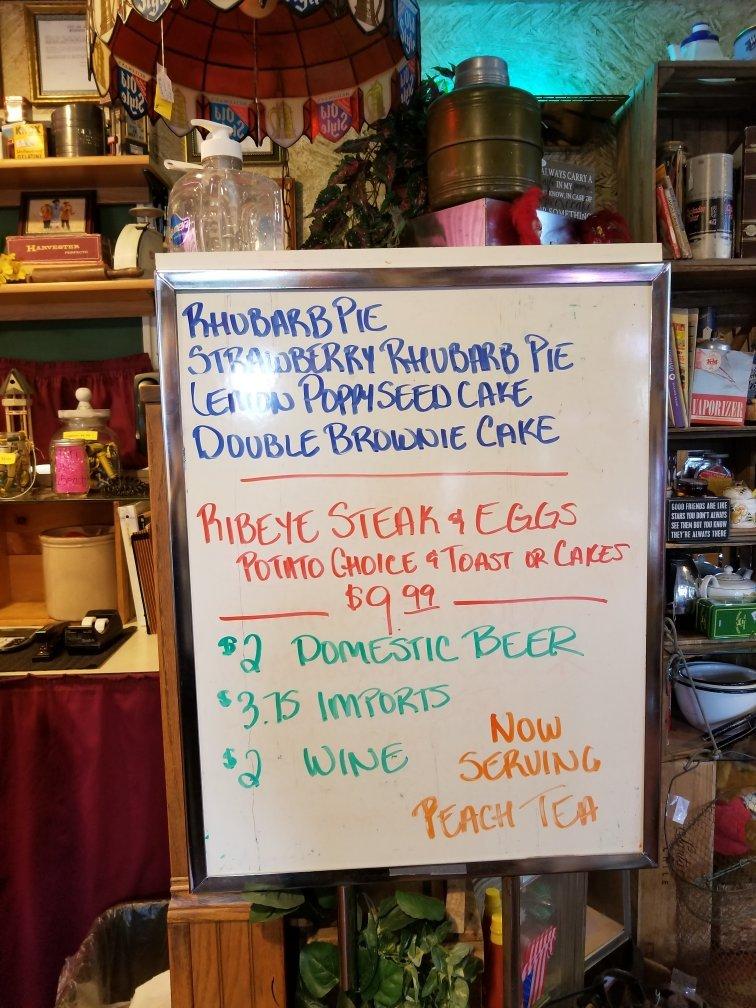 Old Style
Old Style
Old Style
KNOX
GELATINE
HARVESTER
PERFECTO
ALWAYS CARRY A
IN MY
KNOW, IN CASE OF
SOMETHING
RHUBARB PIE
STRAWBERRY RHUBARB PIE
LEMON POPPYSEED CAKE
DOUBLE BROWNIE CAKE
RIBEYE STEAK & EGGS
POTATO CHOICE & TOAST OR CAKES
$9.99
$2 DOMESTIC BEER
$3.75 IMPORTS
$2 WINE
NOW
SERVING
PEACH TEA
VAPORIZER
GOOD FRIENDS ARE LIKE
STARS YOU DON'T ALWAYS
SEE THEM BUT YOU KNOW
THEY'RE ALWAYS THERE